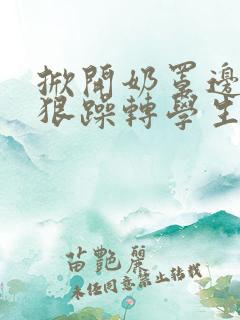 掀開奶罩邊
狠躁轉學生
苗艷麗
未经同意禁止转载